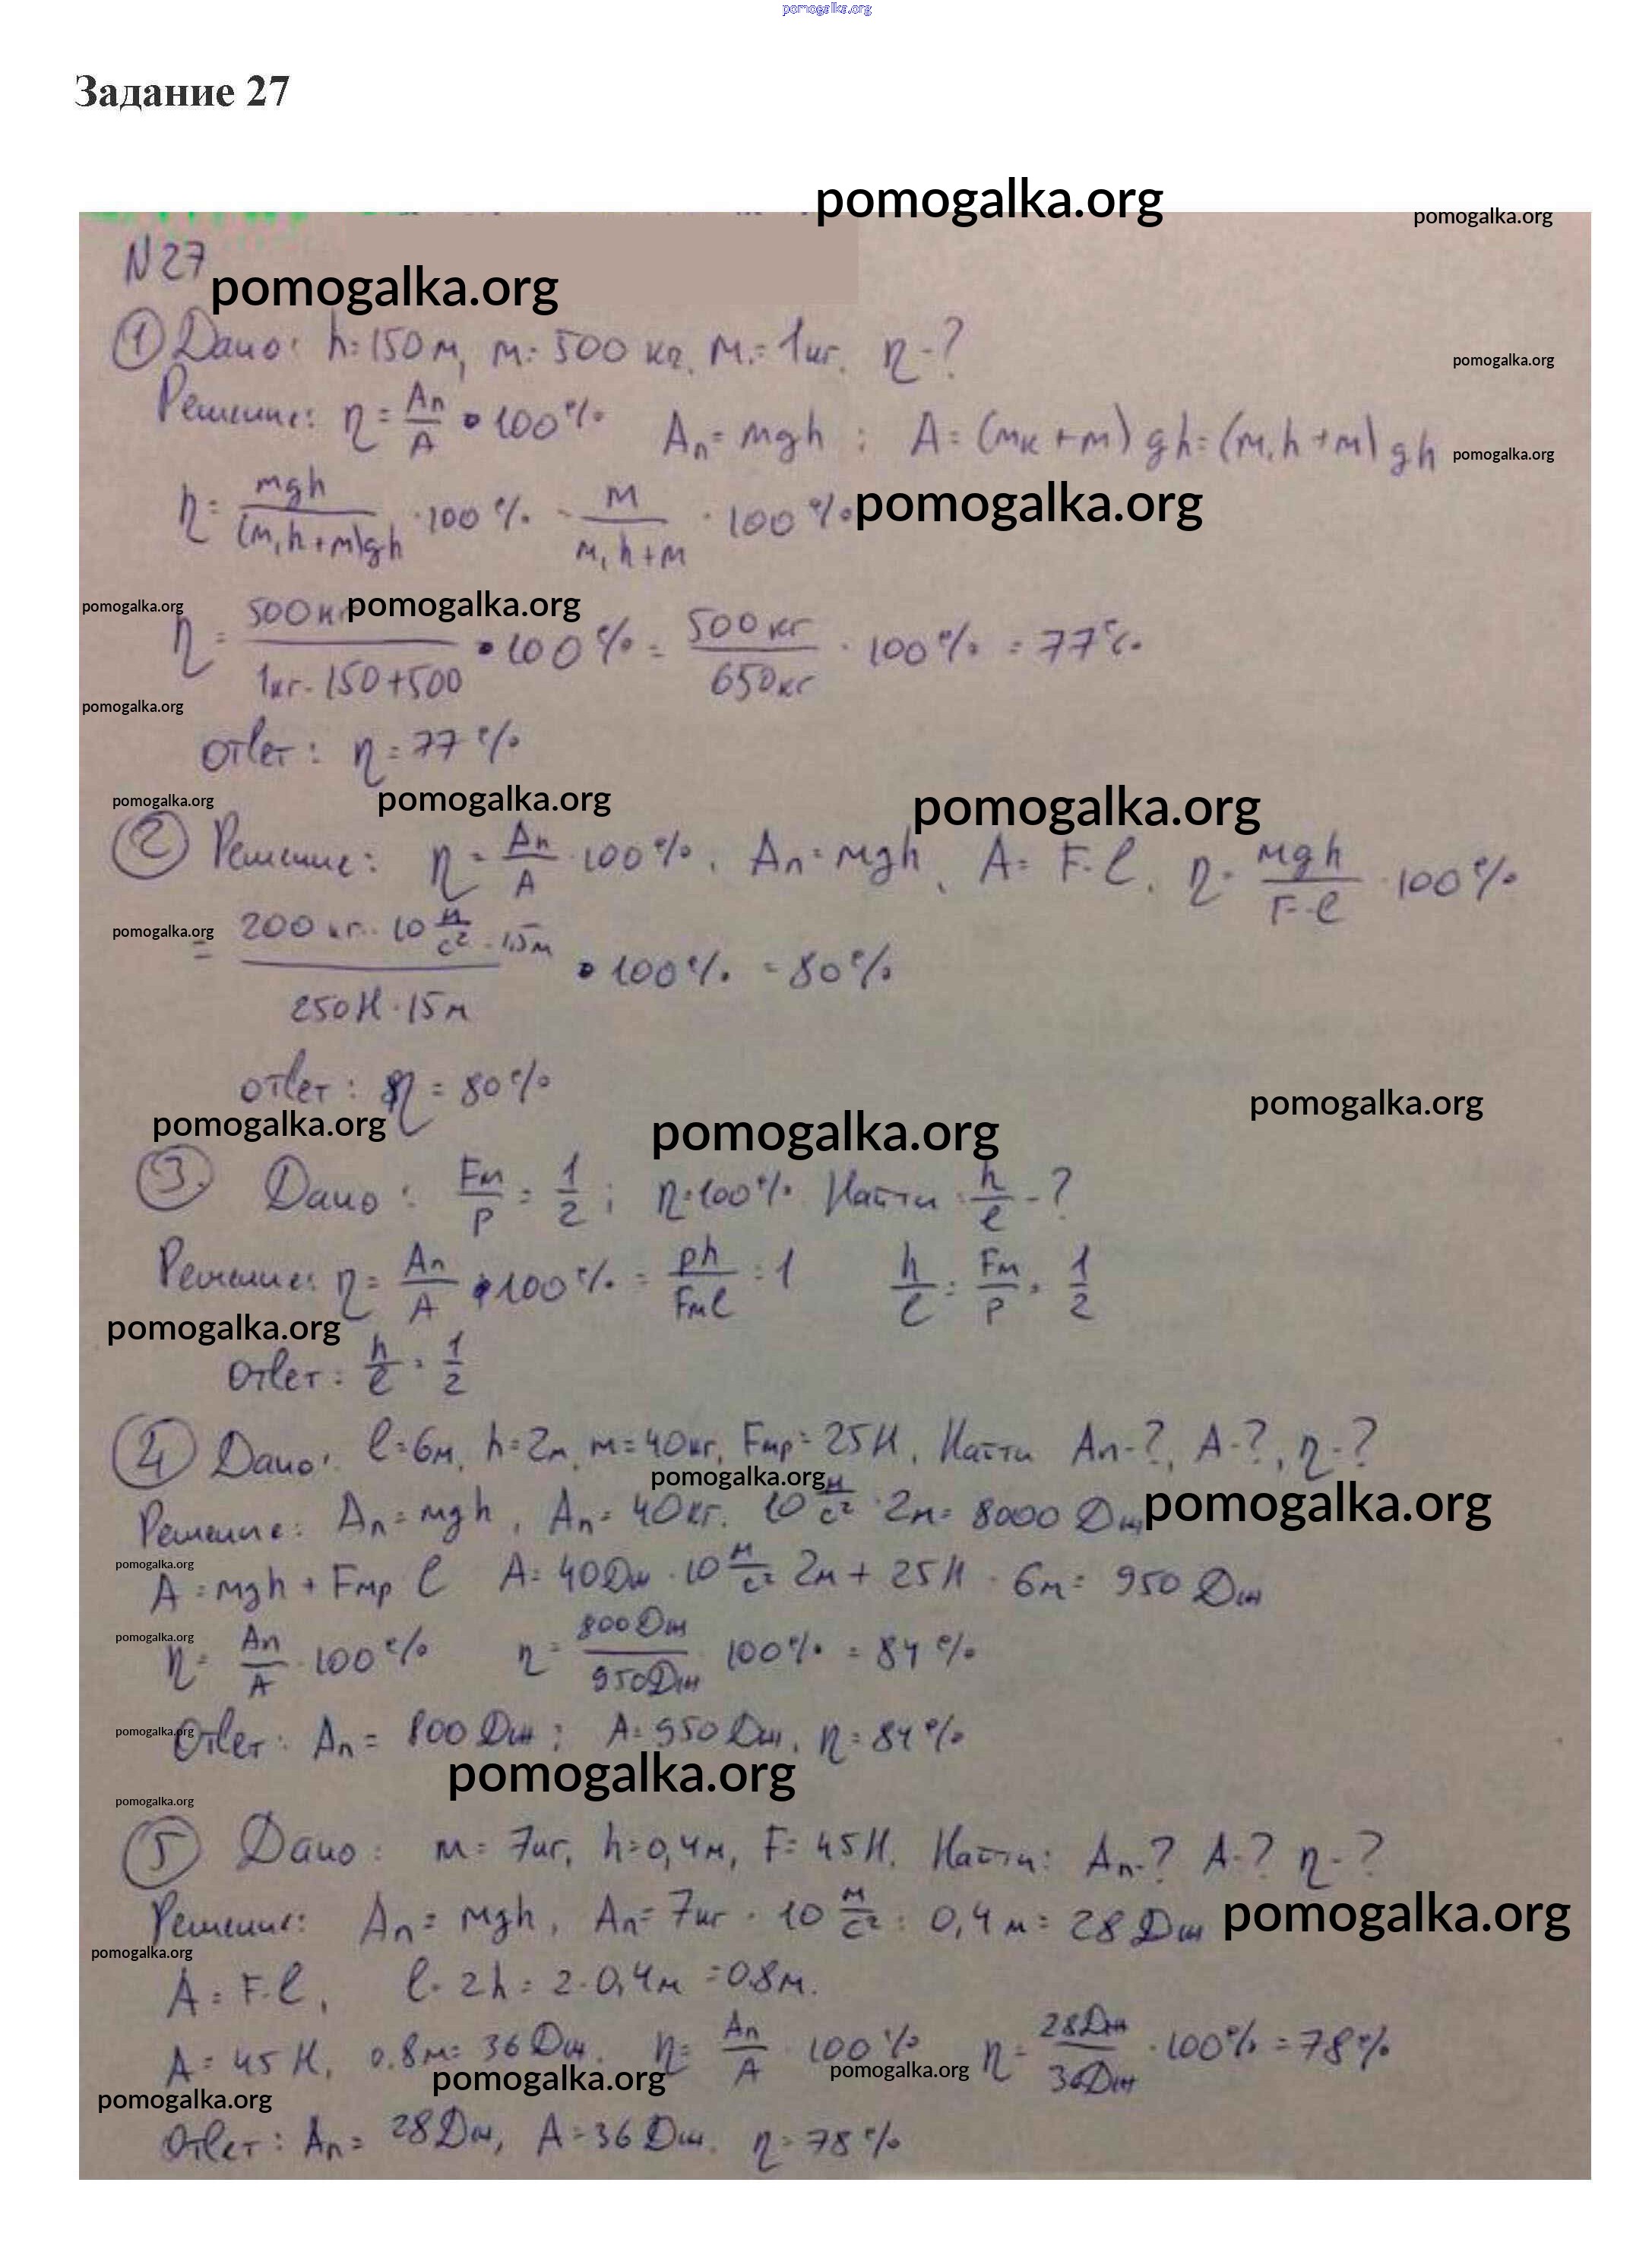 pomogalka.org
Задание 27
pomogalka.org
pomogalka.org
N27
pomogalka.org
① Дано: h=150м, m=500 кг, m₁=1кг. η-?
pomogalka.org
Решение: η = Aп/A • 100% Aп = mgh ; A = (mк + m) gh = (m₁h + m) gh
pomogalka.org
η = mgh/(m₁h+m)gh · 100% = m/m₁h+m · 100%
pomogalka.org
pomogalka.org
pomogalka.org
η = 500кг/1кг·150+500 • 100% = 500 кг/650кг · 100% = 77%
pomogalka.org
Ответ: η = 77%
pomogalka.org
pomogalka.org
pomogalka.org
② Решение: η = Aп/A · 100%, Aп = mgh, A = F·l. η = mgh/F·l · 100%
pomogalka.org
= 200 кг · 10 м/с² · 1,5м/250Н · 15м • 100% = 80%
Ответ: η = 80%
pomogalka.org
pomogalka.org
pomogalka.org
③. Дано: Fм/P = 1/2 ; η=100% Найти: h/l - ?
Решение: η = Aп/A • 100% = ph/Fмl = 1 h/l = Fм/P = 1/2
pomogalka.org
Ответ: h/l = 1/2
④ Дано: l=6м, h=2м, m=40кг, Fтр=25Н, Найти Aп-?, A-?, η-?
pomogalka.org
Решение: Aп = mgh, Aп = 40кг. 10 м/с² · 2м = 8000 Дж
pomogalka.org
pomogalka.org
A = mgh + Fтр l A = 40Дж · 10 м/с² 2м + 25Н · 6м = 950 Дж
pomogalka.org
η = Aп/A · 100% η = 800Дж/950Дж 100% = 84%
pomogalka.org
Ответ: Aп = 800 Дж ; A = 950 Дж, η = 84%
pomogalka.org
pomogalka.org
⑤ Дано: m = 7кг, h=0,4м, F=45Н. Найти: Aп-? A-? η-?
Решение: Aп = mgh, Aп = 7кг · 10 м/с² · 0,4 м = 28 Дж
pomogalka.org
pomogalka.org
A = F·l, l = 2h = 2·0,4м = 0.8м.
A = 45 Н, 0.8м = 36 Дж. η = Aп/A · 100% η = 28Дж/36Дж · 100% = 78%
pomogalka.org
pomogalka.org
pomogalka.org
Ответ: Aп = 28Дж, A = 36 Дж. η = 78%